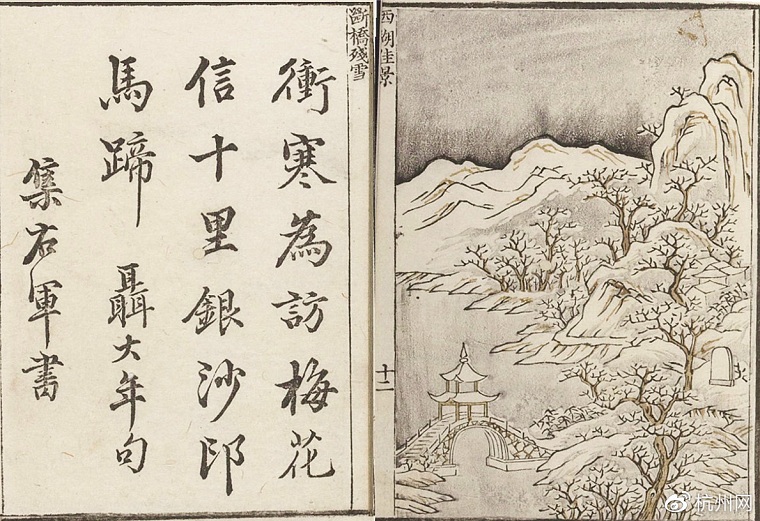 西湖佳景
十二
斷橋殘雪
衝寒為訪梅花
信十里銀沙印
馬蹄 聶大年句
集右軍書
杭州网